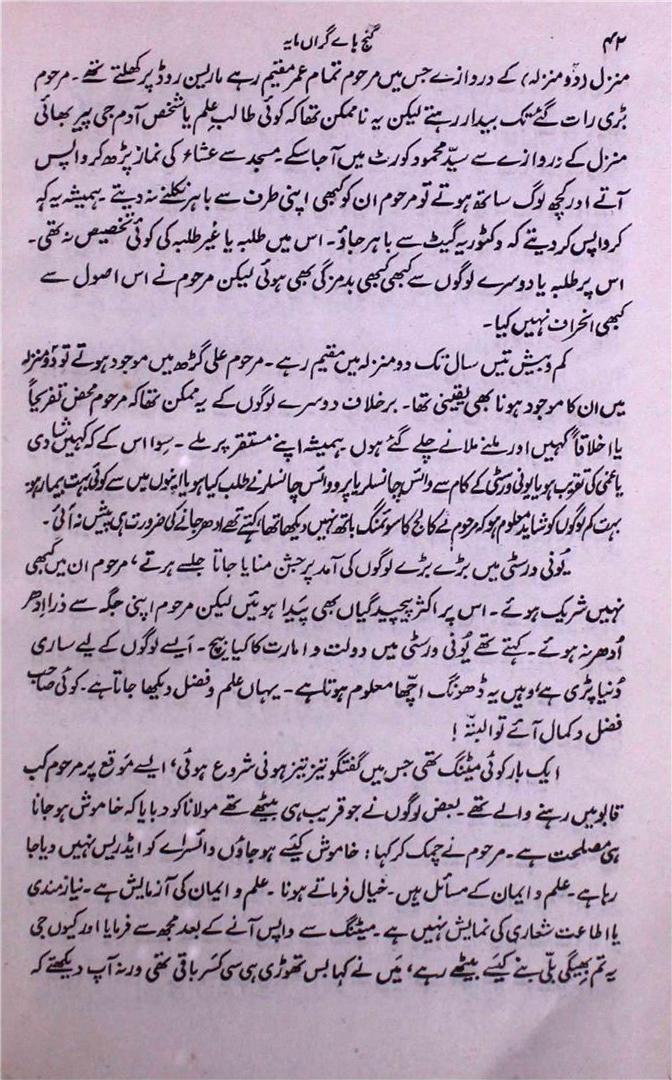 ۴۲ گنج ہاے گراں مایہ
منزل (دو منزلہ) کے دروازے جس میں مرحوم تمام عمر مقیم رہے مارلین روڈ پر کھلتے تھے۔ مرحوم
بڑی رات گئے تک بیدار رہتے لیکن یہ ناممکن تھا کہ کوئی طالب علم یا شخص آدم جی پیر بھائی
منزل کے دروازے سے سیّد محمود کورٹ میں آ جا سکے۔ مسجد سے عشاء کی نماز پڑھ کر واپس
آتے اور کچھ لوگ ساتھ ہوتے تو مرحوم ان کو کبھی اپنی طرف سے باہر نکلنے نہ دیتے۔ ہمیشہ یہ کہہ
کر واپس کر دیتے کہ وکٹوریہ گیٹ سے باہر جاؤ۔ اس میں طلبہ یا غیر طلبہ کی کوئی تخصیص نہ تھی۔
اس پر طلبہ یا دوسرے لوگوں سے کبھی کبھی بدمزگی بھی ہوئی لیکن مرحوم نے اس اصول سے
کبھی انحراف نہیں کیا۔
کم و بیش تیس سال تک دو منزلہ میں مقیم رہے۔ مرحوم علی گڑھ میں موجود ہوتے تو دَو منزلہ
میں ان کا موجود ہونا بھی یقینی تھا۔ برخلاف دوسرے لوگوں کے یہ ممکن تھا کہ مرحوم محض تفریحاً
یا اخلاقاً کہیں اور ملنے ملانے چلے گئے ہوں ہمیشہ اپنے مستقر پر ملے۔ سِوا اس کے کہ کہیں شادی
یا غمی کی تقریب ہو یا یونی ورسٹی کے کام سے وائس چانسلر یا پرو وائس چانسلر نے طلب کیا ہو یا اپنوں میں سے کوئی بہت بیمار ہو۔
بہت کم لوگوں کو شاید معلوم ہو کہ مرحوم نے کالج کا سوئمنگ باتھ نہیں دیکھا تھا، کہتے تھے ادھر جانے کی ضرورت ہی پیش نہ آئی۔
یونی ورسٹی میں بڑے بڑے لوگوں کی آمد پر جشن منایا جاتا جلسے ہوتے، مرحوم ان میں کبھی
نہیں شریک ہوئے۔ اس پر اکثر پیچیدگیاں بھی پیدا ہوئیں لیکن مرحوم اپنی جگہ سے ذرا اِدھر
اُدھر نہ ہوئے۔ کہتے تھے یُونی ورسٹی میں دولت و امارت کا کیا بیچ۔ ایسے لوگوں کے لیے ساری
دُنیا پڑی ہے، وہیں یہ ڈھونگ اچھّا معلوم ہوتا ہے۔ یہاں علم و فضل دیکھا جاتا ہے۔ کوئی صاحبِ
فضل و کمال آئے تو البتّہ!
ایک بار کوئی میٹنگ تھی جس میں گفتگو تیز تیز ہونی شروع ہوئی، ایسے مَوقع پر مرحوم کب
قابو میں رہنے والے تھے۔ بعض لوگوں نے جو قریب ہی بیٹھے تھے مولانا کو دبایا کہ خاموش ہو جانا
ہی مصلحت ہے۔ مرحوم نے چمک کر کہا: خاموش کیسے ہو جاؤں وائسراے کو ایڈریس نہیں دیا جا
رہا ہے۔ علم و ایمان کے مسائل ہیں۔ خیال فرماتے ہونا۔ علم و ایمان کی آزمایش ہے۔ نیاز مندی
یا اطاعت شعاری کی نمایش نہیں ہے۔ میٹنگ سے واپس آنے کے بعد مجھ سے فرمایا اور کیوں جی
یہ تم بھیگی بلّی بنے کیسے بیٹھے رہے، مَیں نے کہا بس تھوڑی ہی سی کسر باقی تھی ورنہ آپ دیکھتے کہ